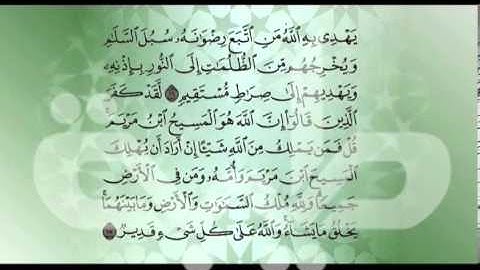 يَهْدِى بِهِ ٱللَّهُ مَنِ ٱتَّبَعَ رِضْوَٰنَهُۥ سُبُلَ ٱلسَّلَٰمِ
وَيُخْرِجُهُم مِّنَ ٱلظُّلُمَٰتِ إِلَى ٱلنُّورِ بِإِذْنِهِۦ
وَيَهْدِيهِمْ إِلَىٰ صِرَٰطٍ مُّسْتَقِيمٍ ١٦ لَّقَدْ كَفَرَ
ٱلَّذِينَ قَالُوٓا۟ إِنَّ ٱللَّهَ هُوَ ٱلْمَسِيحُ ٱبْنُ مَرْيَمَ
قُلْ فَمَن يَمْلِكُ مِنَ ٱللَّهِ شَيْـًٔا إِنْ أَرَادَ أَن يُهْلِكَ
ٱلْمَسِيحَ ٱبْنَ مَرْيَمَ وَأُمَّهُۥ وَمَن فِى ٱلْأَرْضِ
جَمِيعًا وَلِلَّهِ مُلْكُ ٱلسَّمَٰوَٰتِ وَٱلْأَرْضِ وَمَا بَيْنَهُمَا
يَخْلُقُ مَا يَشَآءُ وَٱللَّهُ عَلَىٰ كُلِّ شَىْءٍ قَدِيرٌ ١٧